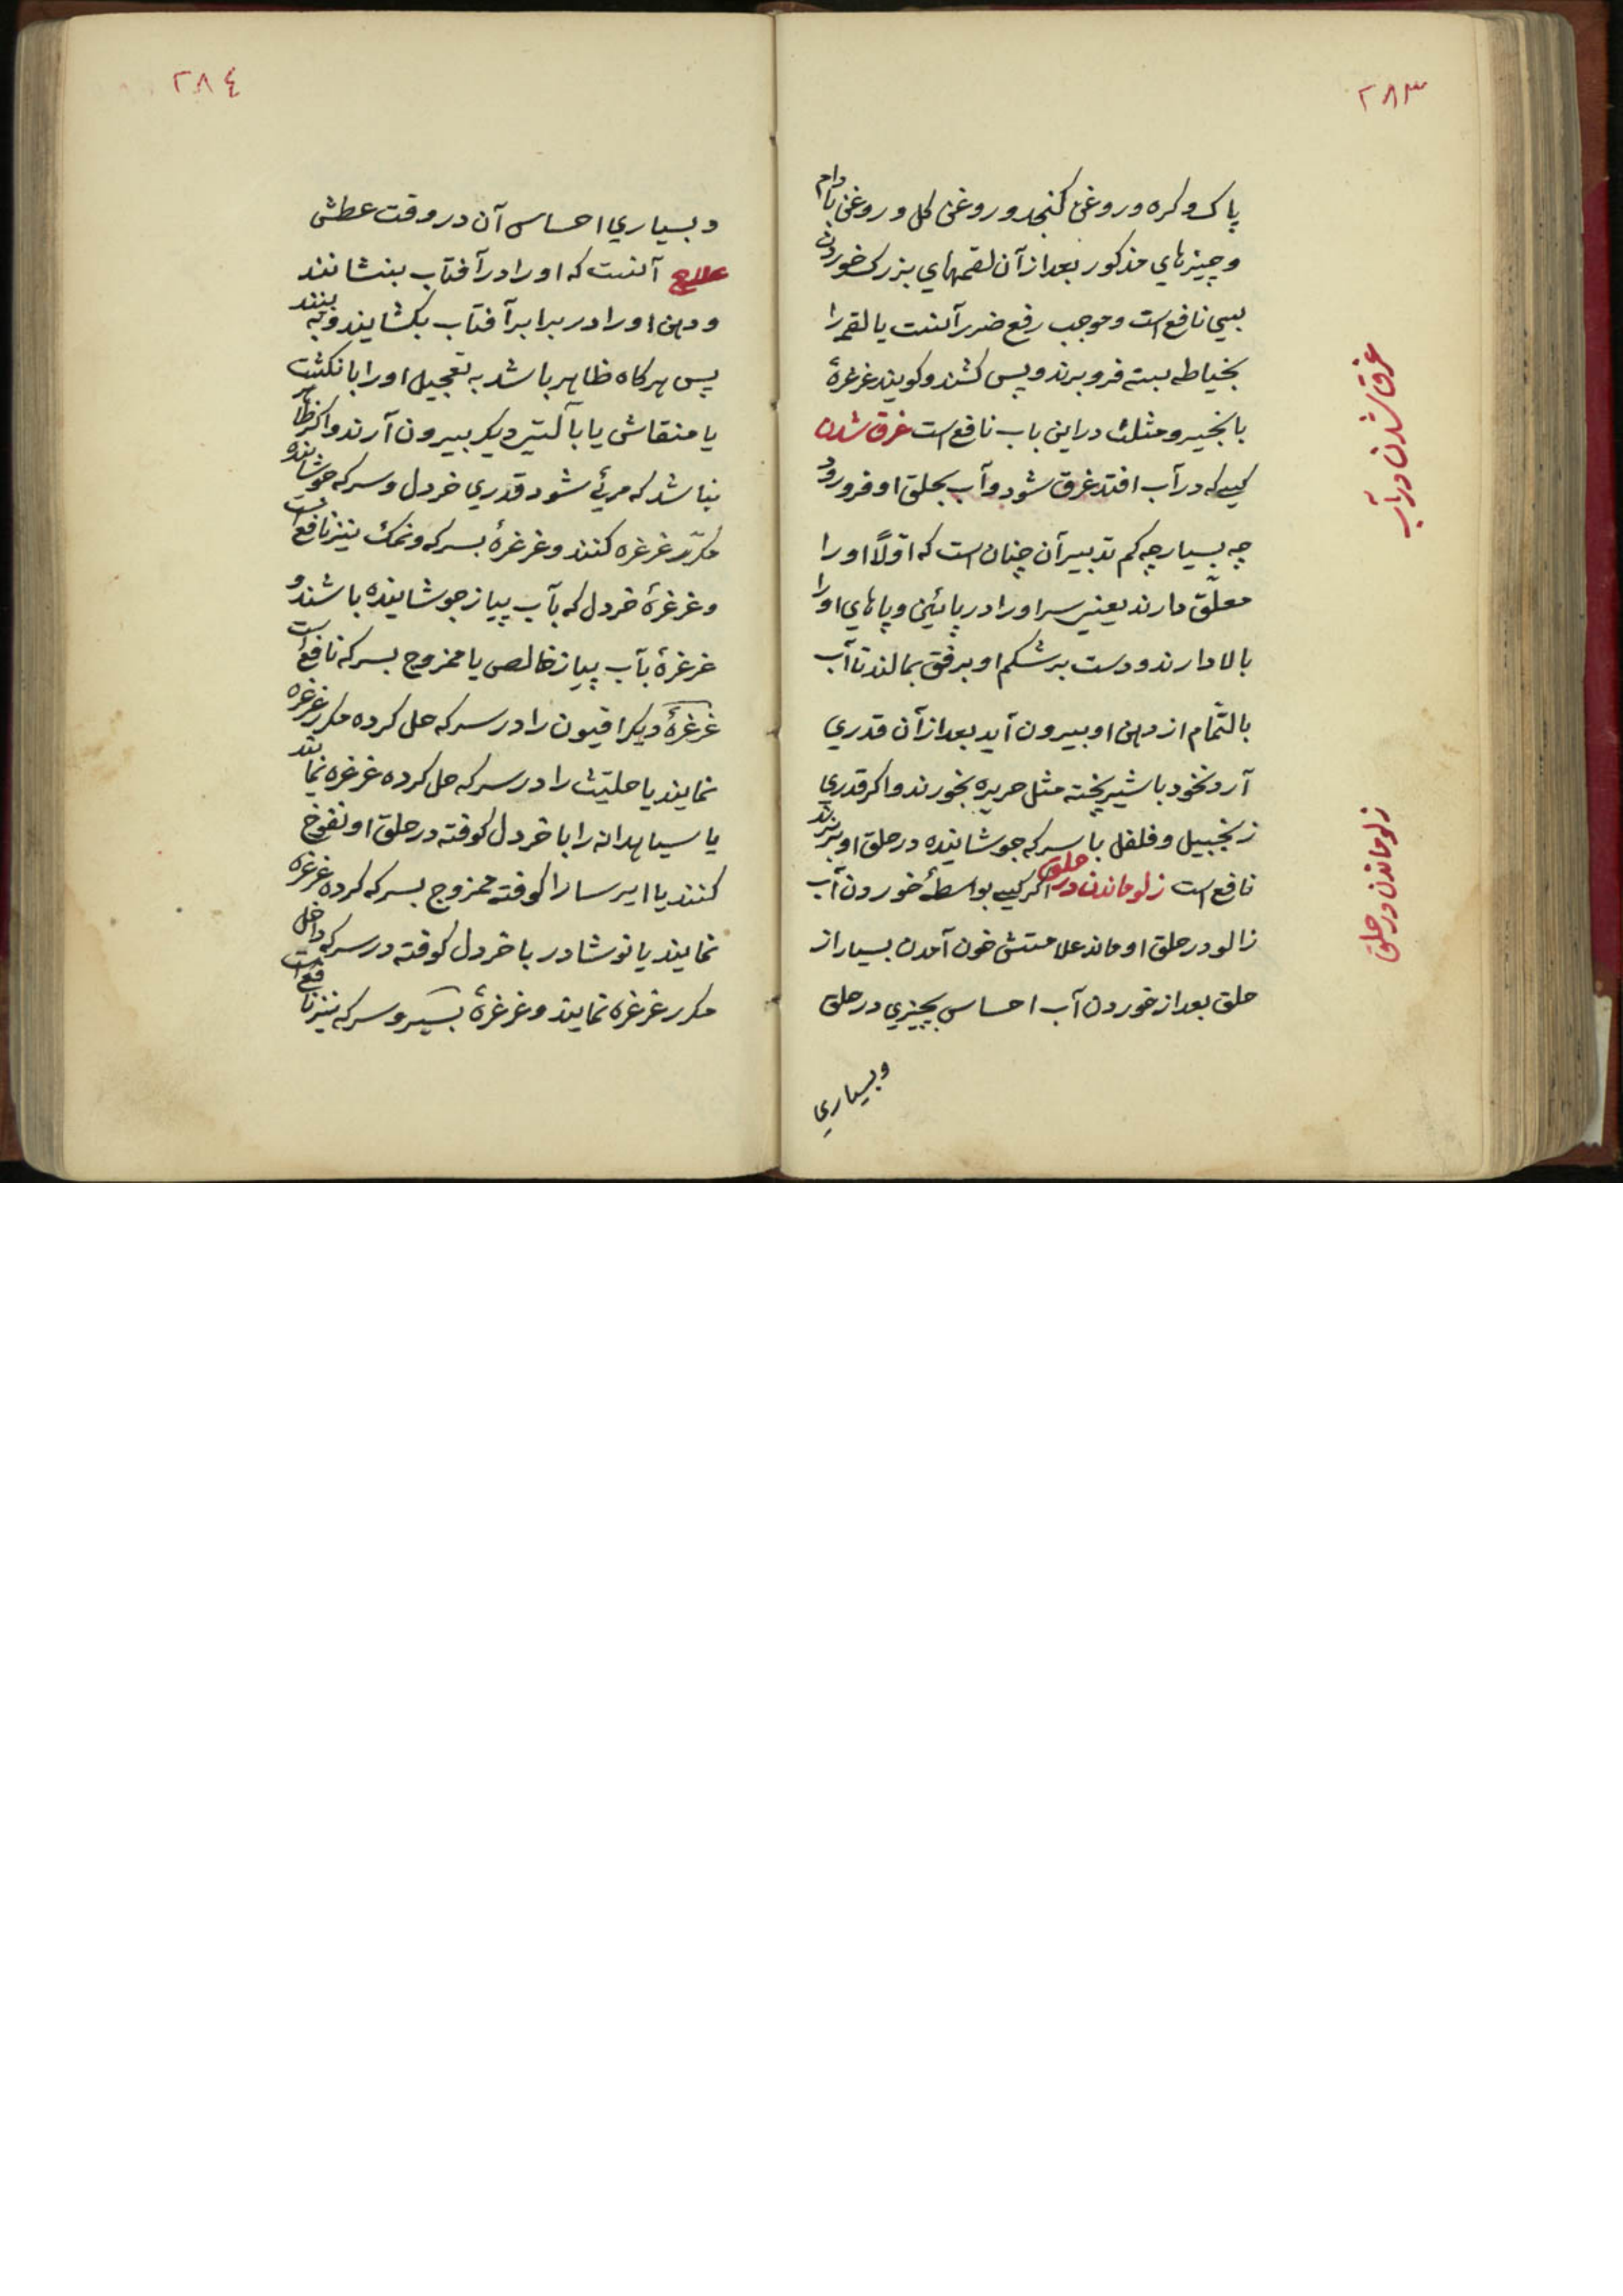 ۲۸۳
پاک و کره و روغن کنجد و روغن کل و روغن بادام
و چیزهای مذکور بعد از آن لقمهای بزرک خوردن
بسی نافع است و موجب رفع ضرر آنست یا لقمه را
بخیاطه بسته فرو برند و پس کشند و کویند غرغرۀ
بانجیر و مثلث در این باب نافع است غرق شدن
کسی که در آب افتد غرق شود و آب بحلق او فرو رود
چه بسیار چه کم تدبیر آن چنان است که اوّلاً او را
معلّق دارند یعنی سر او را در پائین و پاهای او را
بالا دارند و دست بر شکم او برفق بمالند تا آب
بالتّمام از دهن او بیرون آید بعد از آن قدری
آرد نخود با شیر پخته مثل حریره بخورند و اکر قدری
زنجبیل و فلفل با سرکه جوشانیده در حلق او بریزند
نافع است زلو ماندن در حلق اکر کسی بواسطۀ خوردن آب
زالو در حلق او ماند علامتش خون آمدن بسیار از
حلق بعد از خوردن آب احساس بچیزی در حلق
وبسیاری
غرق شدن در آب
زلو ماندن در حلق
۲۸٤
و بسیاری احساس آن در وقت عطش
علاج آنست که او را در آفتاب بنشانند
و دهن او را در برابر آفتاب بکشایند و به بینند
پس هرکاه ظاهر باشد به تعجیل او را بانکشت
یا منقاش یا بآلتی دیکر بیرون آرند و اکر ظاهر
نباشد که مرئی شود قدری خردل و سرکه جوشانیده
مکرّر غرغره کنند و غرغرۀ بسرکه و نمک نیز نافع است
و غرغرۀ خردل که بآب پیاز جوشانیده باشند و
غرغرۀ بآب پیاز خالص یا ممزوج بسرکه نافع است
غرغرۀ دیکر افیون را در سرکه حل کرده مکرر غرغره
نمایند یا حلتیت را در سرکه حل کرده غرغره نمایند
یا سیاهدانه را با خردل کوفته در حلق او نفوخ
کنند یا ایرسا را کوفته ممزوج بسرکه کرده غرغره
نمایند یا نوشادر با خردل کوفته در سرکه داخل
مکرر غرغره نمایند و غرغرۀ بسیر و سرکه نیز نافع است